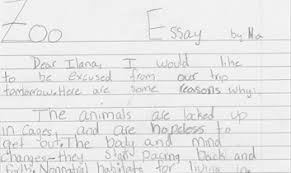 Zoo Essay by Ma
Dear Ilana, I would like
to be excused from our trip
tomorrow. Here are some reasons why:
The animals are locked up
in cages, and are hopeless to
get out. The body and mind
changes-they start pacing back and
forth. Nonnatral habitats for living in